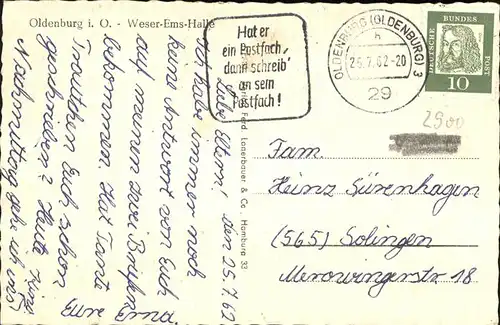 Oldenburg i. O. - Weser-Ems-Halle
Hat er
ein Postfach,
dann schreib'
an sein
Postfach!
OLDENBURG (OLDENBURG) 3
h
25.7.62-20
29
DEUTSCHE BUNDESPOST
10
2900
Fam.
Heinz Sürenhagen
(565) Solingen
Merowingerstr 18
Ferd. Lagerbauer & Co., Hamburg 33
den 25.7.62
Liebe Eltern!
Ich habe immer noch
keine Antwort von Euch
auf meinen zwei Briefen
bekommen. Hat Tante
Trautchen Euch schon
geschrieben? Heute
Nachmittag geh ich ins
Kino
Eure Erna.